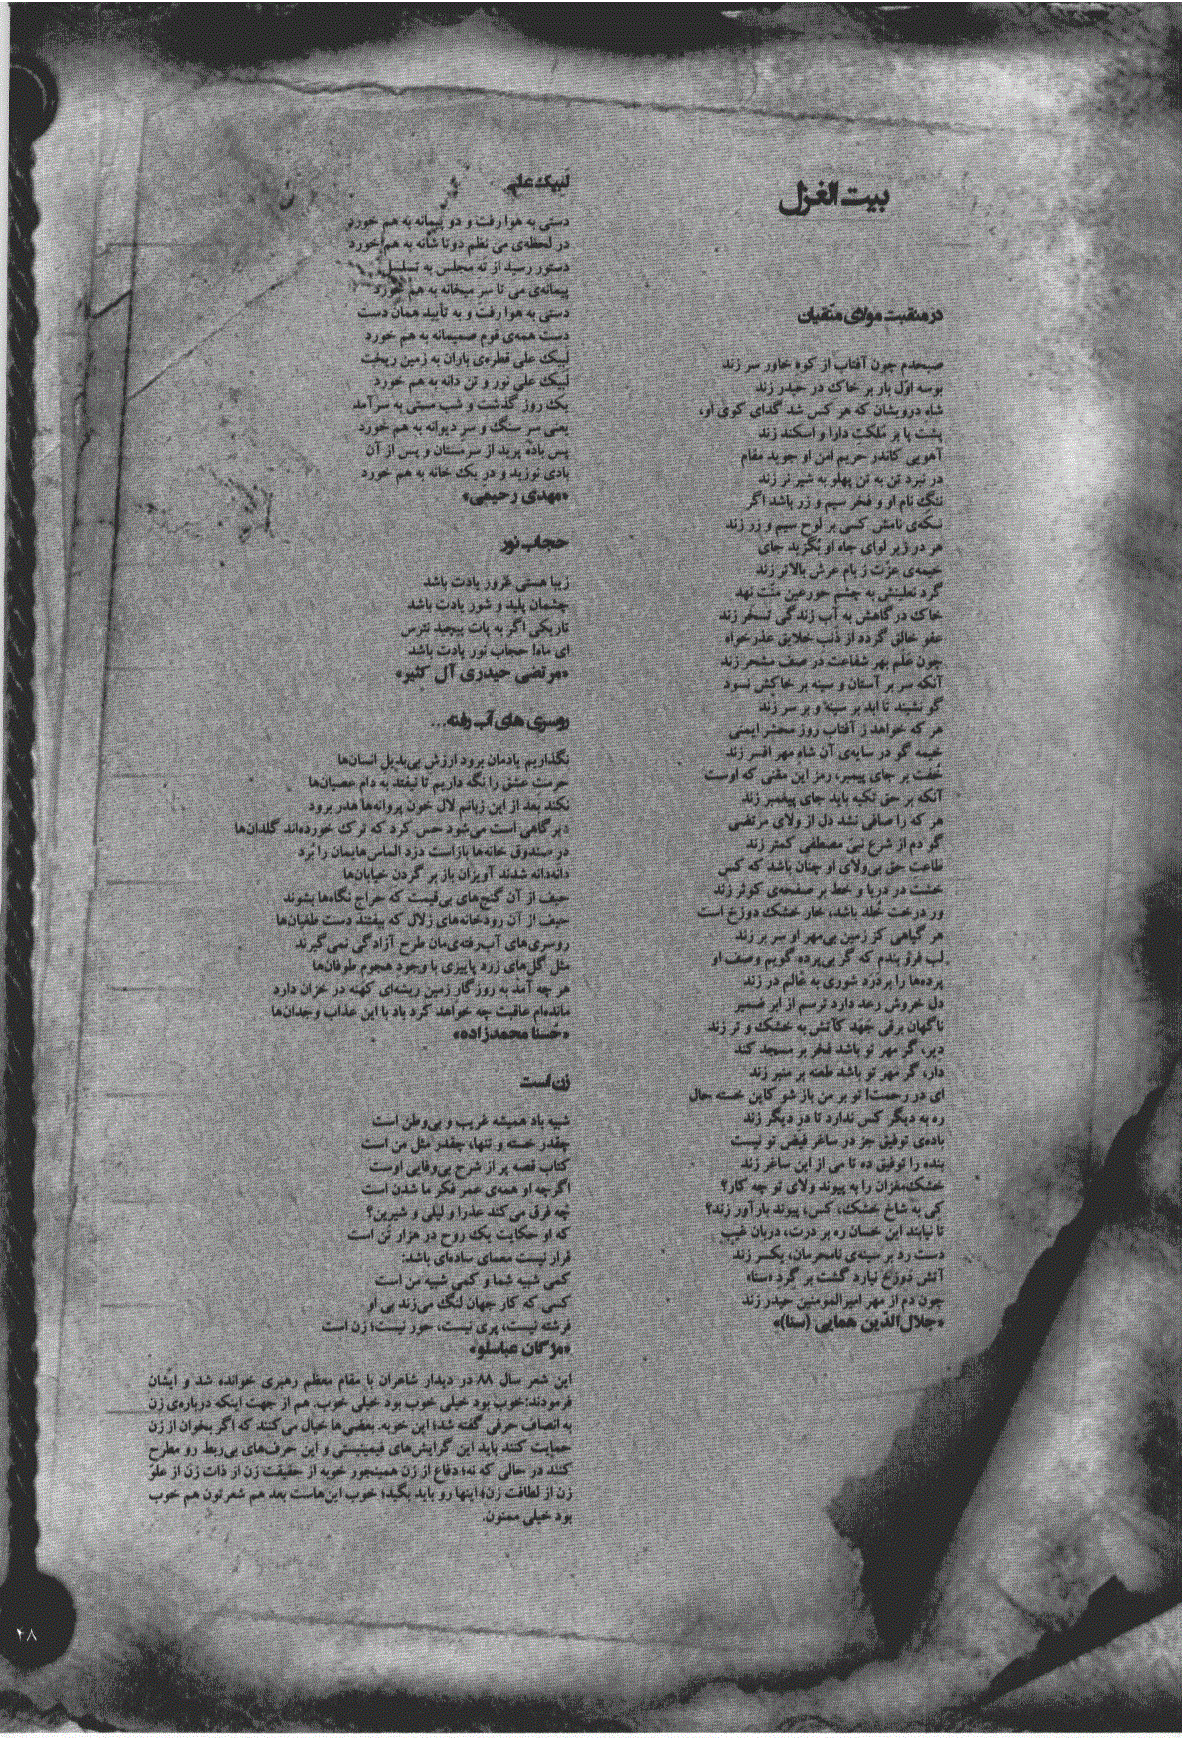 بیت الغزل
در منقبت مولای متقیان
صبحدم چون آفتاب از کوه خاور سر زند
بوسه اوّل بار بر خاک در حیدر زند
شاه درویشان که هر کس شد گدای کوی او،
پشت پا بر مُلکت دارا و اسکند زند
آهویی کاندر حریم امن او جوید مقام
در نبرد تن به تن پهلو به شیر نر زند
ننگ نام او و فخر سیم و زر باشد اگر
سکه‌ی نامش کسی بر لوح سیم و زر زند
هر در زیر لوای جاه او بگزید جای
خیمه‌ی عزّت ز بام عرش بالاتر زند
گرد نعلینش به چشم حورعین منّت نهد
خاک درگاهش به آب زندگی تسخر زند
عفو خالق گردد از ذنب خلایق عذرخواه
چون علم بهر شفاعت در صف محشر زند
آنکه سر بر آستان و سینه بر خاکش نسود
گو نشیند تا ابد بر سینه و بر سر زند
هر که خواهد ز آفتاب روز محشر ایمنی
خیمه گو در سایه‌ی آن شاه مهر افسر زند
خُفت بر جای پیمبر، رمز این معنی که اوست
آنکه بر حق تکیه باید جای پیغمبر زند
هر که را صافی نشد دل از ولای مرتضی
گو دم از شرع نبیّ مصطفی کمتر زند
طاعت حق بی‌ولای او چنان باشد که کس
خشت در دریا و خط بر صفحه‌ی کوثر زند
ور درخت خُلد باشد، خار خشک دوزخ است
هر گیاهی کز زمین بی‌مهر او سر بر زند
لب فرو بندم که گر بی‌پرده گویم وصف او
پرده‌ها را بردَرَد شوری به عالم در زند
دل خروش رعد دارد ترسم از ابر ضمیر
ناگهان برقی جهد کاتش به خشک و تر زند
دیر، گر مهر تو باشد فخر بر مسجد کند
دار، گر مهر تو باشد طعنه بر منبر زند
ای در رحمت! تو بر من باز شو کاین خسته حال
ره به دیگر کس ندارد تا در دیگر زند
باده‌ی توفیق جز در ساغر فیض تو نیست
بنده را توفیق ده تا می از این ساغر زند
خشک‌مغزان را به پیوند ولای تو چه کار؟
کی به شاخ خشک، کس، پیوند بارآور زند؟
تا نیابند این خسان ره بر درت، دربان غیب
دست رد بر سینه‌ی نامحرمان، یکسر زند
آتش دوزخ نیارد گشت بر گرد «سنا»
چون دم از مهر امیرالمومنین حیدر زند
«جلال‌الدّین همایی (سنا)»
لبیک علی
دستی به هوا رفت و دو پیمانه به هم خورد
در لحظه‌ی می نظم دو تا شانه به هم خورد
دستور رسید از ته مجلس به تسلسل
پیمانه‌ی می تا سر میخانه به هم خورد
دستی به هوا رفت و به تأیید همان دست
دست همه‌ی قوم صمیمانه به هم خورد
لبیک علی قطره‌ی باران به زمین ریخت
لبیک علی نور و تن دانه به هم خورد
یک روز گذشت و شب مستی به سر آمد
یعنی سر سنگ و سر دیوانه به هم خورد
پس باده پرید از سر مستان و پس از آن
بادی نوزید و در یک خانه به هم خورد
«مهدی رحیمی»
حجاب نور
زیبا هستی غرور یادت باشد
چشمان پلید و شور یادت باشد
تاریکی اگر به پات پیچید نترس
ای ماه! حجاب نور یادت باشد
«مرتضی حیدری آل کثیر»
روسری های آب رفته...
نگذاریم یادمان برود ارزش بی‌بدیل انسان‌ها
حرمت عشق را نگه داریم تا نیفتد به دام عصیان‌ها
نکند بعد از این زبانم لال خون پروانه‌ها هدر برود
برگاهی است می‌شود حس کرد که ترک خورده‌اند گلدان‌ها
در صندوق خانه‌ها بازاست دزد الماس‌هایمان را بُرد
دانه‌دانه شدند آویزان باز بر گردن خیابان‌ها
حیف از آن گنج‌های بی‌قیمت که حراج نگاه‌ها بشوند
حیف از آن رودخانه‌های زلال که بیفتند دست طغیان‌ها
روسری‌های آب‌رفته‌ی‌مان طرح آزادگی نمی‌گیرند
مثل گل‌های زرد پاییزی با وجود هجوم طوفان‌ها
هر چه آمد به روزگار زمین ریشه‌ای کهنه در خزان دارد
مانده‌ام عاقبت چه خواهد کرد باد با این عذاب وجدان‌ها
«حُسنا محمدزاده»
زن است
شبیه باد همیشه غریب و بی‌وطن است
چقدر خسته و تنها، چقدر مثل من است
کتاب قصه پر از شرح بی‌وفایی اوست
اگرچه او همه‌ی عمر فکر ما شدن است
چه فرق می‌کند عذرا و لیلی و شیرین؟
که او حکایت یک روح در هزار تن است
قرار نیست معمای ساده‌ای باشد:
کمی شبیه شما و کمی شبیه من است
کسی که کار جهان لنگ می‌زند بی او
فرشته نیست، پری نیست، حور نیست؛ زن است
«مژگان عباسلو»
این شعر سال ۸۸ در دیدار شاعران با مقام معظم رهبری خوانده شد و ایشان
فرمودند: خوب بود خیلی خوب بود خیلی خوب. هم از جهت اینکه درباره‌ی زن
به انصاف حرفی گفته شد؛ این خوبه. بعضی‌ها خیال می‌کنند که اگر بخوان از زن
حمایت کنند باید این گرایش‌های فیمینیستی و این حرف‌های بی‌ربط رو مطرح
کنند در حالی که نه؛ دفاع از زن همینجور خوبه از حقیقت زن از ذات زن از علو
زن از لطافت زن؛ اینها رو باید بگید؛ خوب این‌هاست بعد هم شعرتون هم خوب
بود خیلی ممنون.
۲۸